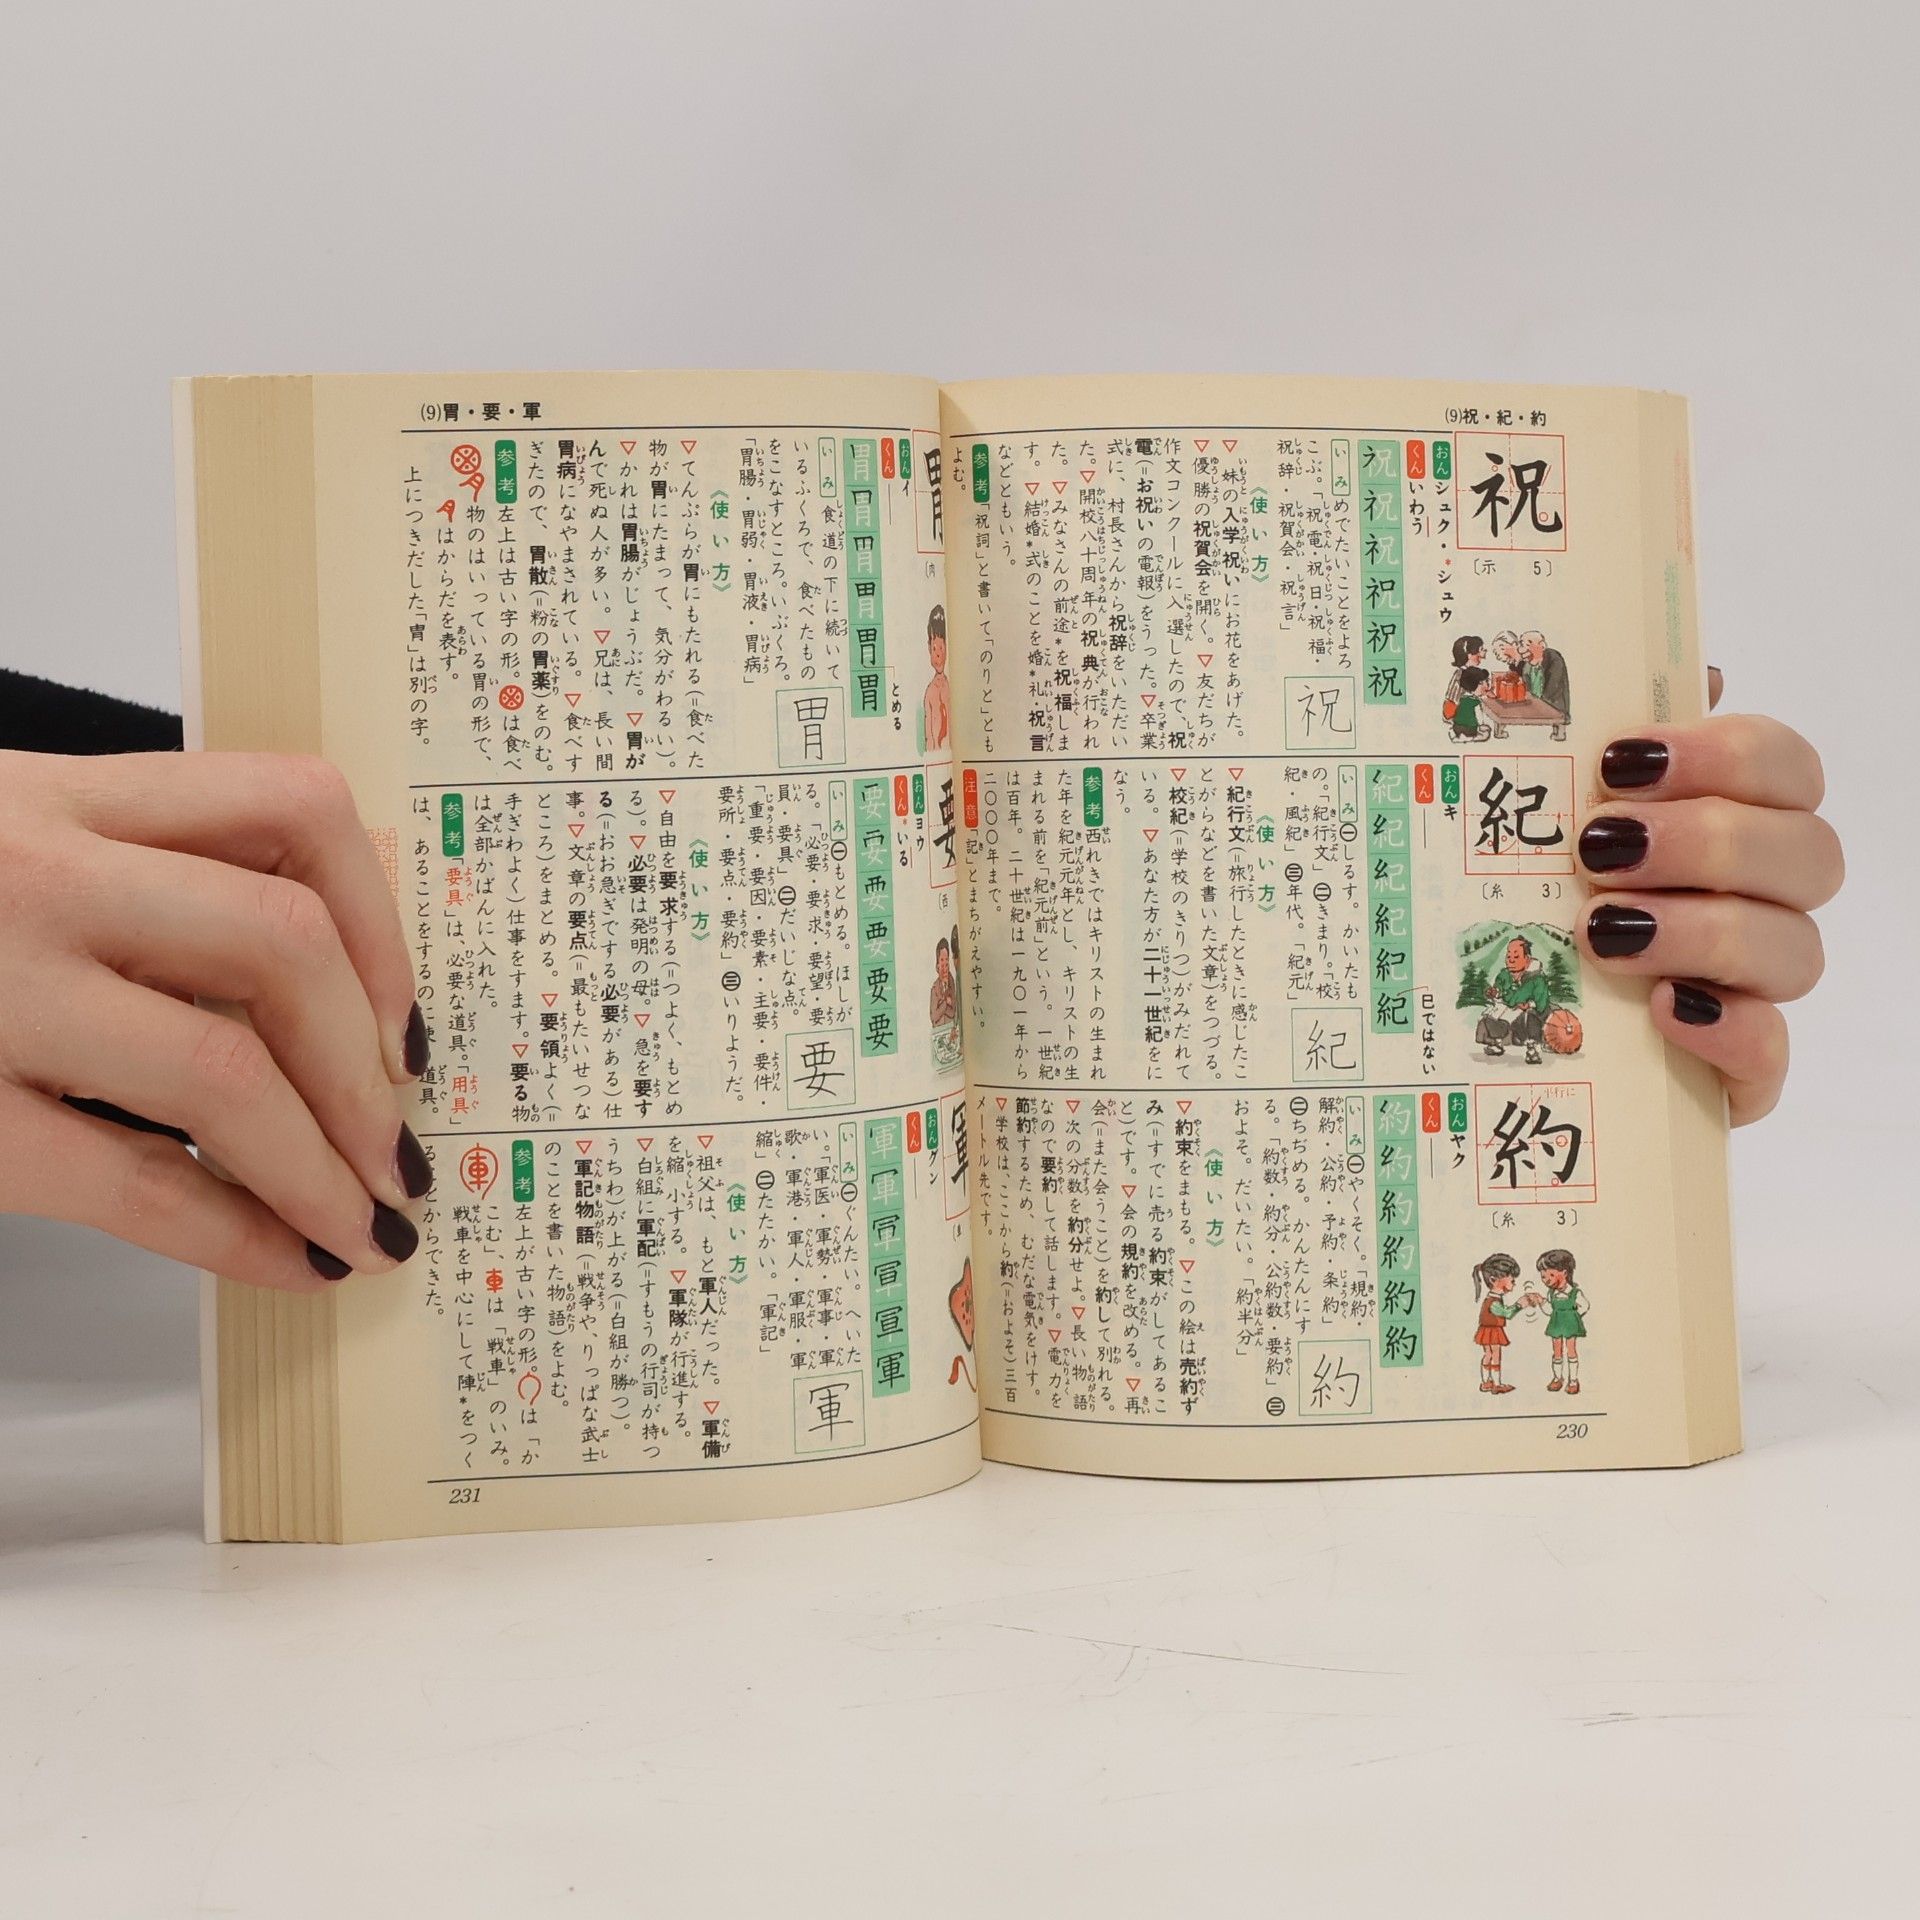 (9)祝・紀・約
祝
〔示 5〕
おん シュク・*シュウ
くん いわう
祝祝祝祝祝祝
いみ めでたいことをよろ
こぶ。「祝電・祝日・祝福・
祝辞・祝賀会・祝言」
祝
《使い方》
▽妹の入学祝いにお花をあげた。
▽優勝の祝賀会を開く。▽友だちが
作文コンクールに入選したので、祝
電(=お祝いの電報)をうった。▽卒業
式に、村長さんから祝辞をいただい
た。▽開校八十周年の祝典が行われ
た。▽みなさんの前途*を祝福しま
す。▽結婚*式のことを婚*礼・祝言
などともいう。
参考「祝詞」と書いて「のりと」とも
よむ。
紀
〔糸 3〕
おん キ
くん ―
紀紀紀紀紀紀
巳ではない
いみ ㊀しるす。かいたも
の。「紀行文」㊁きまり。「校
紀・風紀」㊂年代。「紀元」
紀
《使い方》
▽紀行文(=旅行したときに感じたこ
とがらなどを書いた文章)をつづる。
▽校紀(=学校のきりつ)がみだれて
いる。▽あなた方が二十一世紀をに
なう。
参考 西れきではキリストの生まれ
た年を紀元元年とし、キリストの生
まれる前を「紀元前」という。一世紀
は百年。二十世紀は一九〇一年から
二〇〇〇年まで。
注意「記」とまちがえやすい。
約
平行に
〔糸 3〕
おん ヤク
くん ―
約約約約約約
いみ ㊀やくそく。「規約・
解約・公約・予約・条約」
㊁ちぢめる。かんたんにす
る。「約数・約分・公約数・要約」㊂
およそ。だいたい。「約半分」
約
《使い方》
▽約束をまもる。▽この絵は売約ず
み(=すでに売る約束がしてあるこ
と)です。▽会の規約を改める。▽再
会(=また会うこと)を約して別れる。
▽次の分数を約分せよ。▽長い物語
なので要約して話します。▽電力を
節約するため、むだな電気をけす。
▽学校は、ここから約(=およそ)三百
メートル先です。
230
(9)胃・要・軍
胃
おん イ
くん ―
胃胃胃胃胃胃
とめる
いみ 食道の下に続いて
いるふくろで、食べたもの
をこなすところ。いぶくろ。
「胃腸・胃弱・胃液・胃病」
胃
《使い方》
▽てんぷらが胃にもたれる(=食べた
物が胃にたまって、気分がわるい)。
▽かれは胃腸がじょうぶだ。▽胃が
んで死ぬ人が多い。▽兄は、長い間
胃病になやまされている。▽食べす
ぎたので、胃散(=粉の胃薬)をのむ。
参考 左上は古い字の形。は食べ
物のはいっている胃の形で、
はからだを表す。
上につきだした「冑」は別の字。
要
おん ヨウ
くん *いる
要要要要要要
いみ ㊀もとめる。ほしが
る。「必要・要求・要望・要
員・要具」㊁だいじな点。
「重要・要因・要素・主要・要件・
要所・要点・要約」㊂いりようだ。
要
《使い方》
▽自由を要求する(=つよく、もとめ
る)。▽必要は発明の母。▽急を要す
る(=おお急ぎでする必要がある)仕
事。▽文章の要点(=最もたいせつな
ところ)をまとめる。▽要領よく(=
手ぎわよく)仕事をすます。▽要る物
は全部かばんに入れた。
参考「要具」は、必要な道具。「用具」
は、あることをするのに使う道具。
軍
おん グン
くん ―
軍軍軍軍軍軍
いみ ㊀ぐんたい。へいた
い。「軍医・軍勢・軍事・軍
歌・軍港・軍人・軍服・軍
縮」㊁たたかい。「軍記」
軍
《使い方》
▽祖父は、もと軍人だった。▽軍備
を縮小する。▽軍隊が行進する。
▽白組に軍配(=すもうの行司が持つ
うちわ)が上がる(=白組が勝つ)。
▽軍記物語(=戦争や、りっぱな武士
のことを書いた物語)をよむ。
参考 左上が古い字の形。は「か
こむ」、車は「戦車」のいみ。
戦車を中心にして陣*をつく
ることからできた。
231